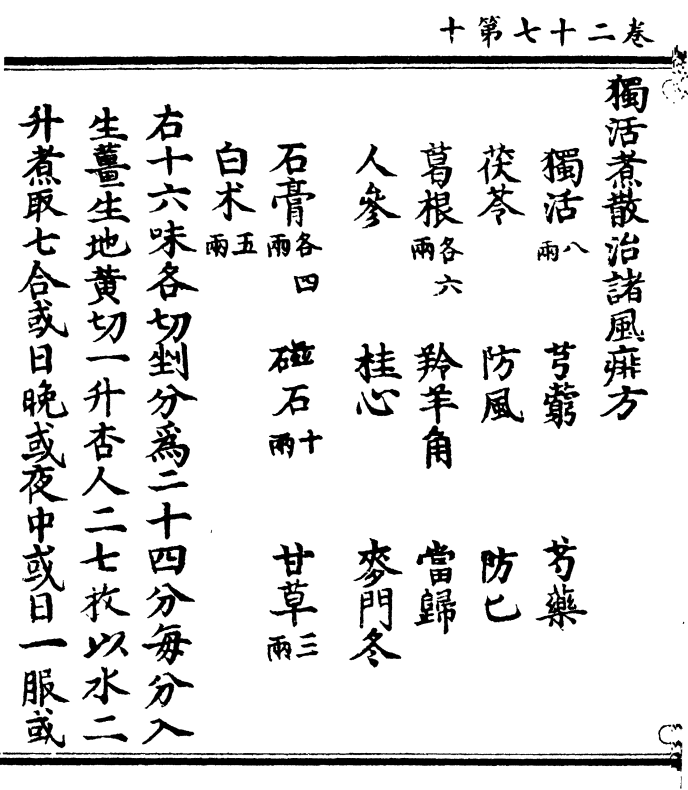 卷二十七第十
獨活煮散治諸風痱方
獨活八兩　芎藭　芍藥
茯苓　防風　防已
葛根各六兩　羚羊角　當歸
人參　桂心　麥門冬
石膏各四兩　磁石十兩　甘草三兩
白术五兩
右十六味各切剉分爲二十四分每分入
生薑生地黄切一升杏人二七枚以水二
升煮取七合或日晚或夜中或日一服或